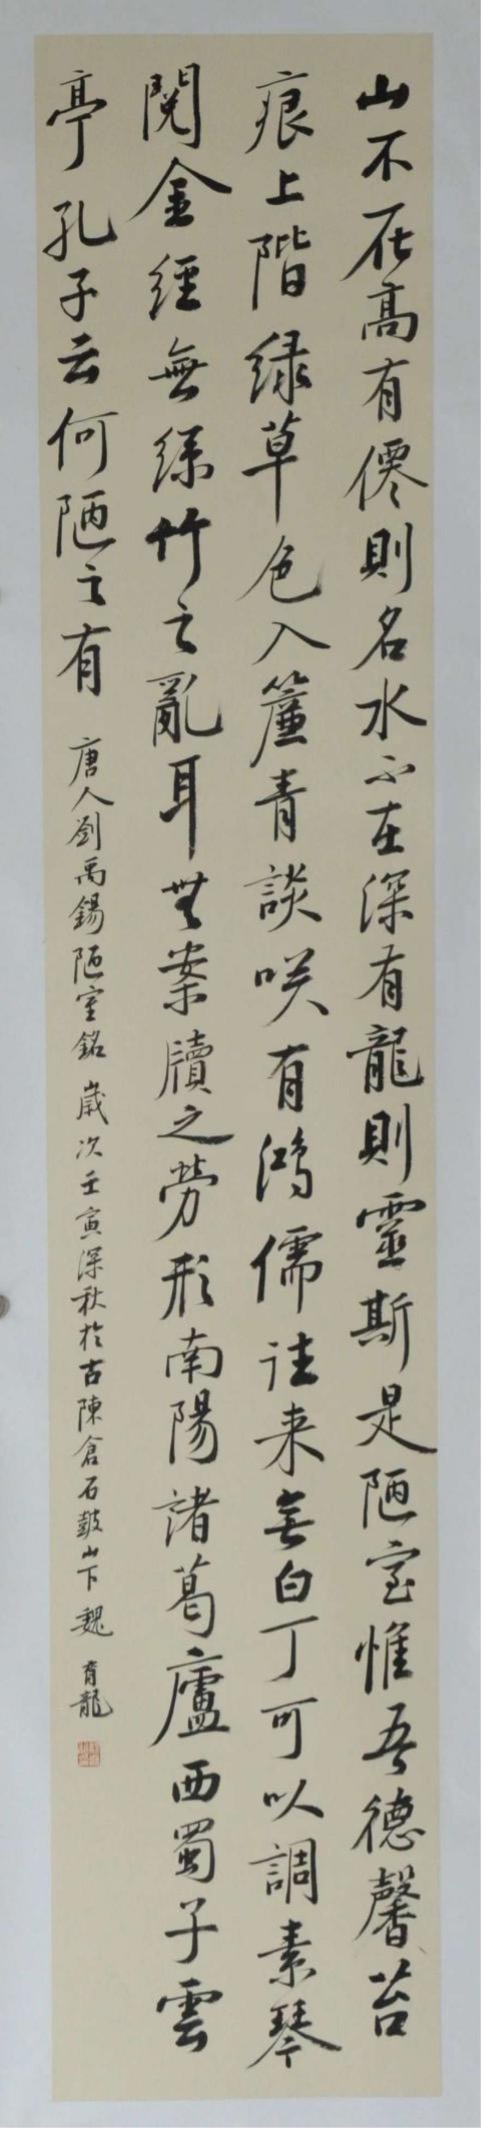 山不在高有僊則名水不在深有龍則靈斯是陋室惟吾德馨苔
痕上階緑草色入簾青談咲有鴻儒往来無白丁可以調素琴
閱金經無絲竹之亂耳無案牘之勞形南陽諸葛廬西蜀子雲
亭孔子云何陋之有
唐人劉禹錫陋室銘歲次壬寅深秋於古陳倉石鼓山下魏育龍